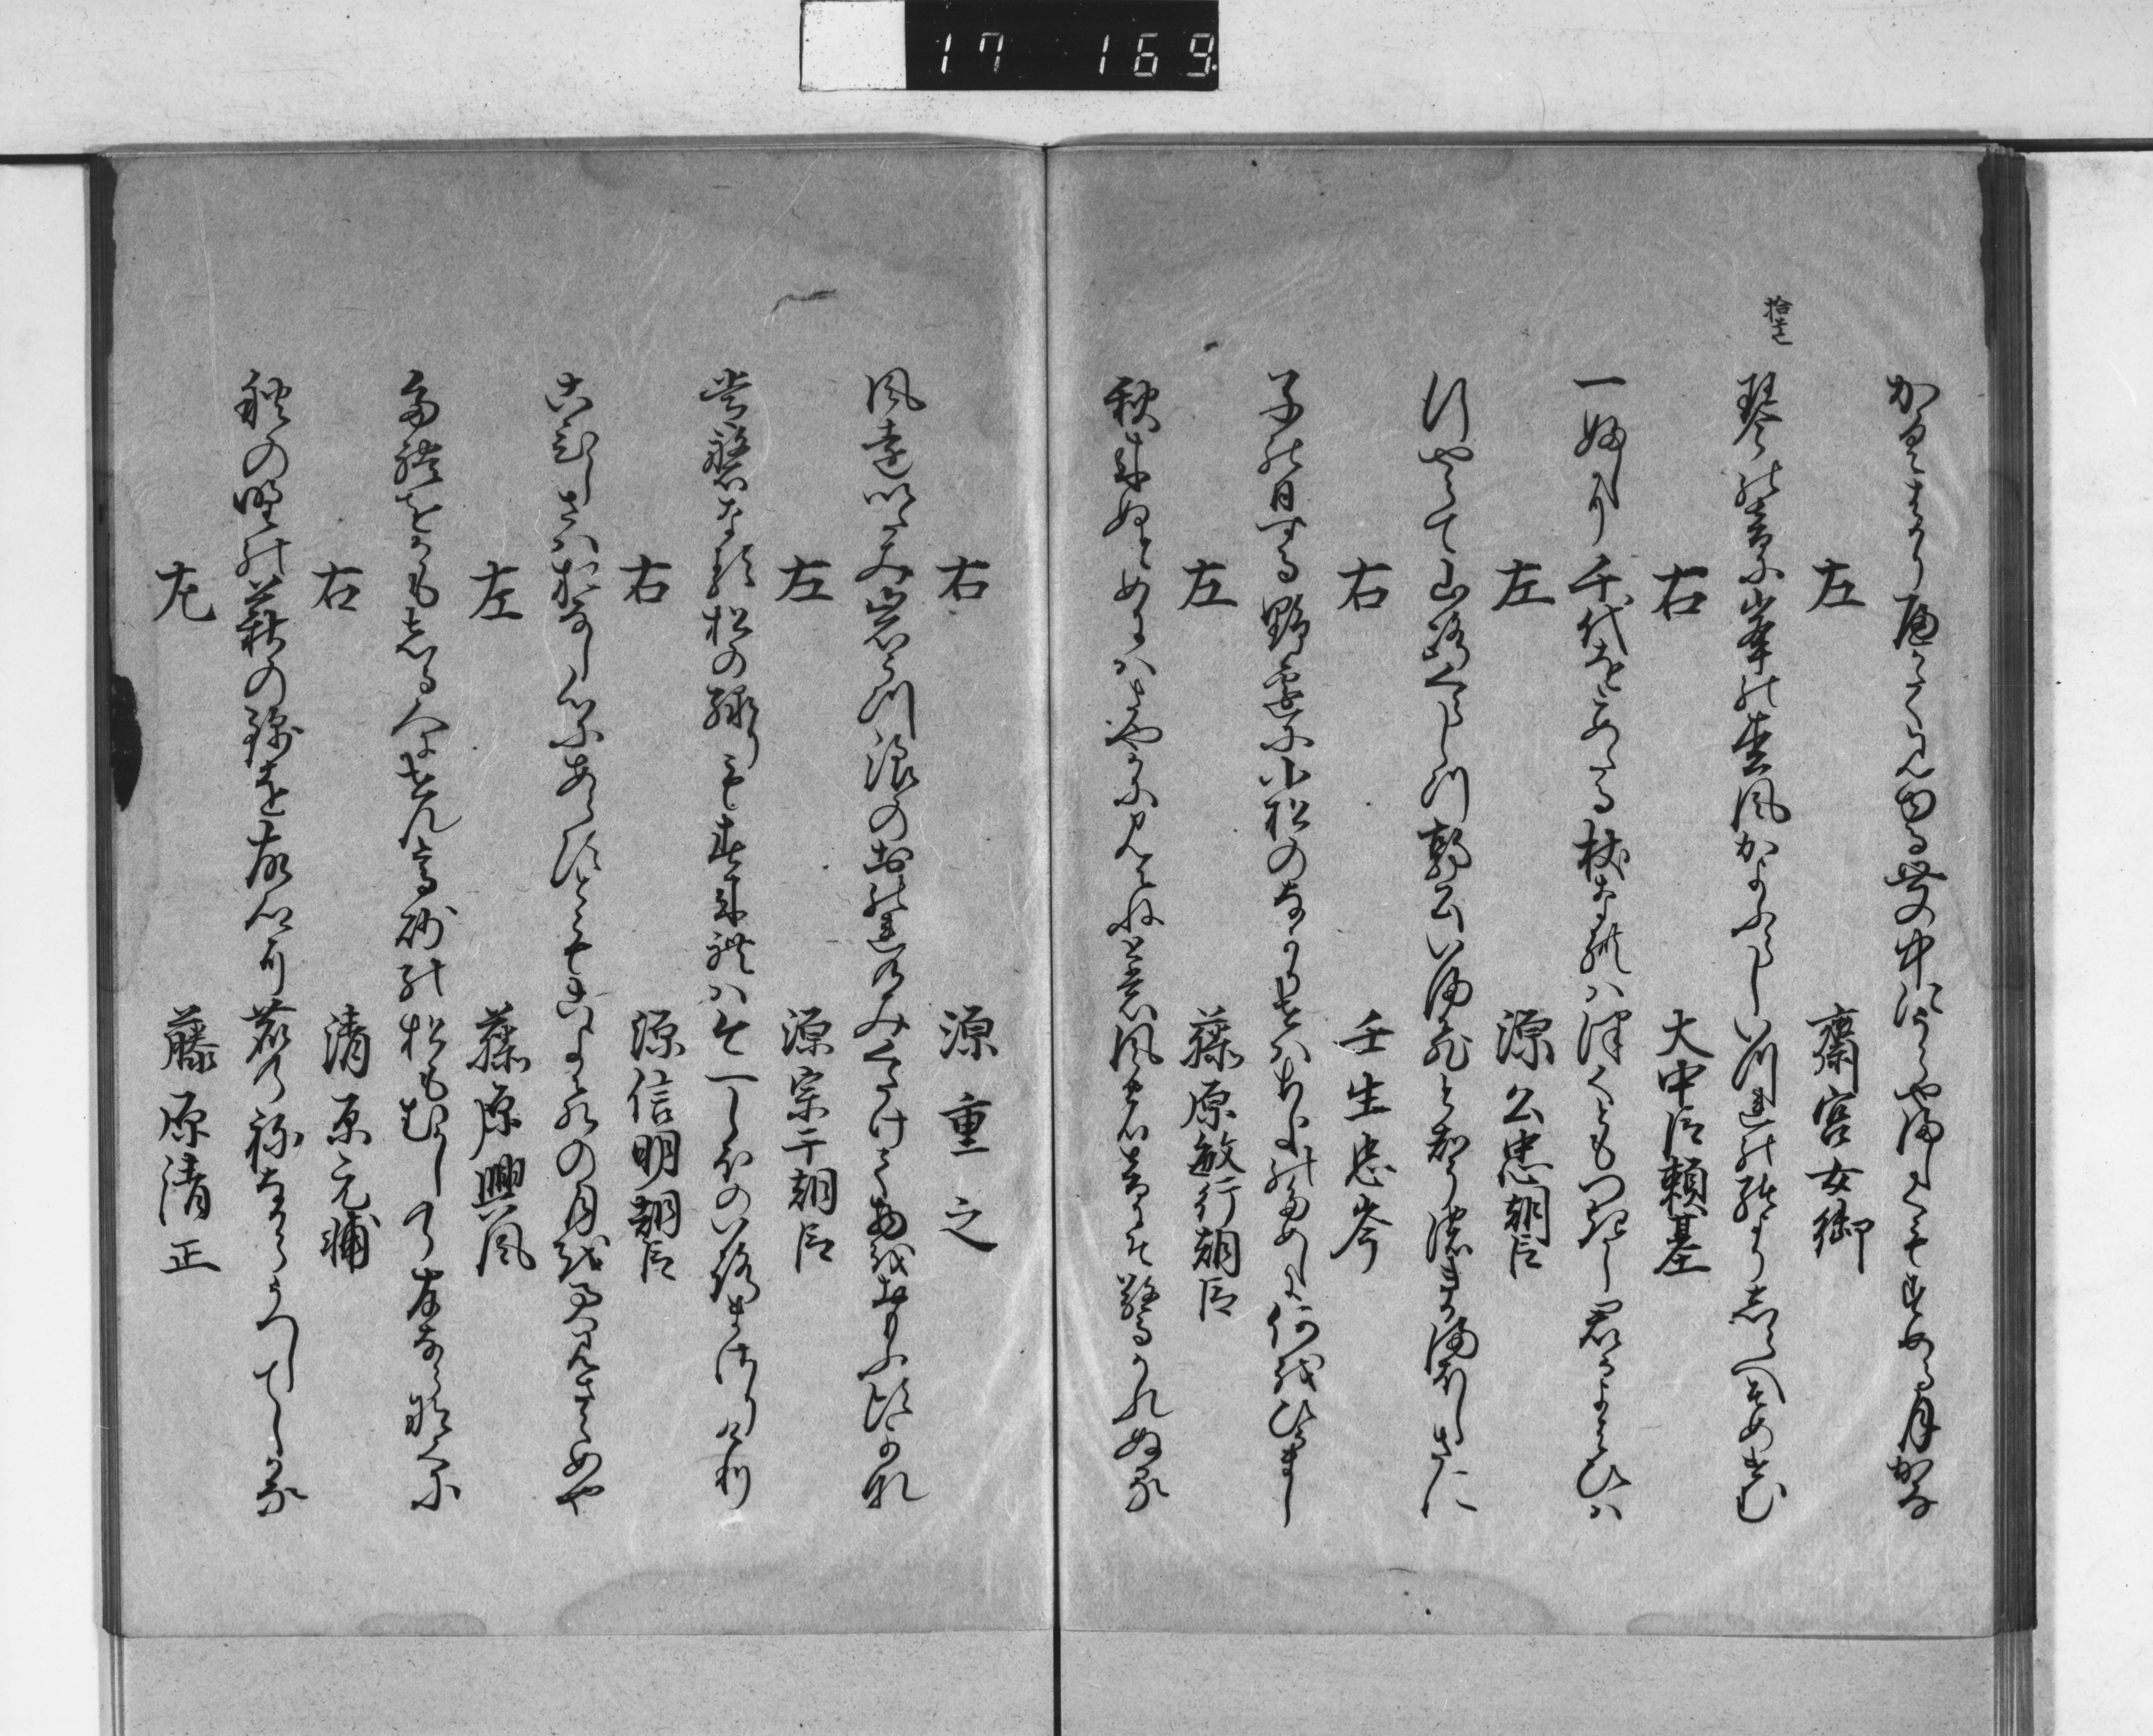 17 169
かくはかりへかたくみゆる世の中にうら山しくもすめる月かな
左 齋宮女御
拾遺
琴の音に峯の松風かよふらしいつれの緒よりしらへそめけむ
右 大中臣頼基
一ふしに千代をこめたる杖なれハつくともつきし君かよはひハ
左 源公忠朝臣
行やらて山路くらしつ郭公いま一こゑのきかまほしさに
右 壬生忠岑
子の日する野邊に小松のなかりせハ千世のためしに何をひかまし
左 藤原敏行朝臣
秋来ぬとめにハさやかに見えねとも風の音にそ驚かれぬる
右 源重之
風をいたみ岩うつ浪のおのれのみくたけて物をおもふ比かな
左 源宗于朝臣
常盤なる松の緑も春来れハ今一しほのいろまさりけり
右 源信明朝臣
こひしさハおなし心にあらすともこよひの月を君見さらめや
左 藤原興風
誰をかもしる人にせん高砂の松もむかしの友ならなくに
右 清原元輔
秋の野の萩の錦を故郷に鹿の音なからうつしてしかな
左 藤原清正